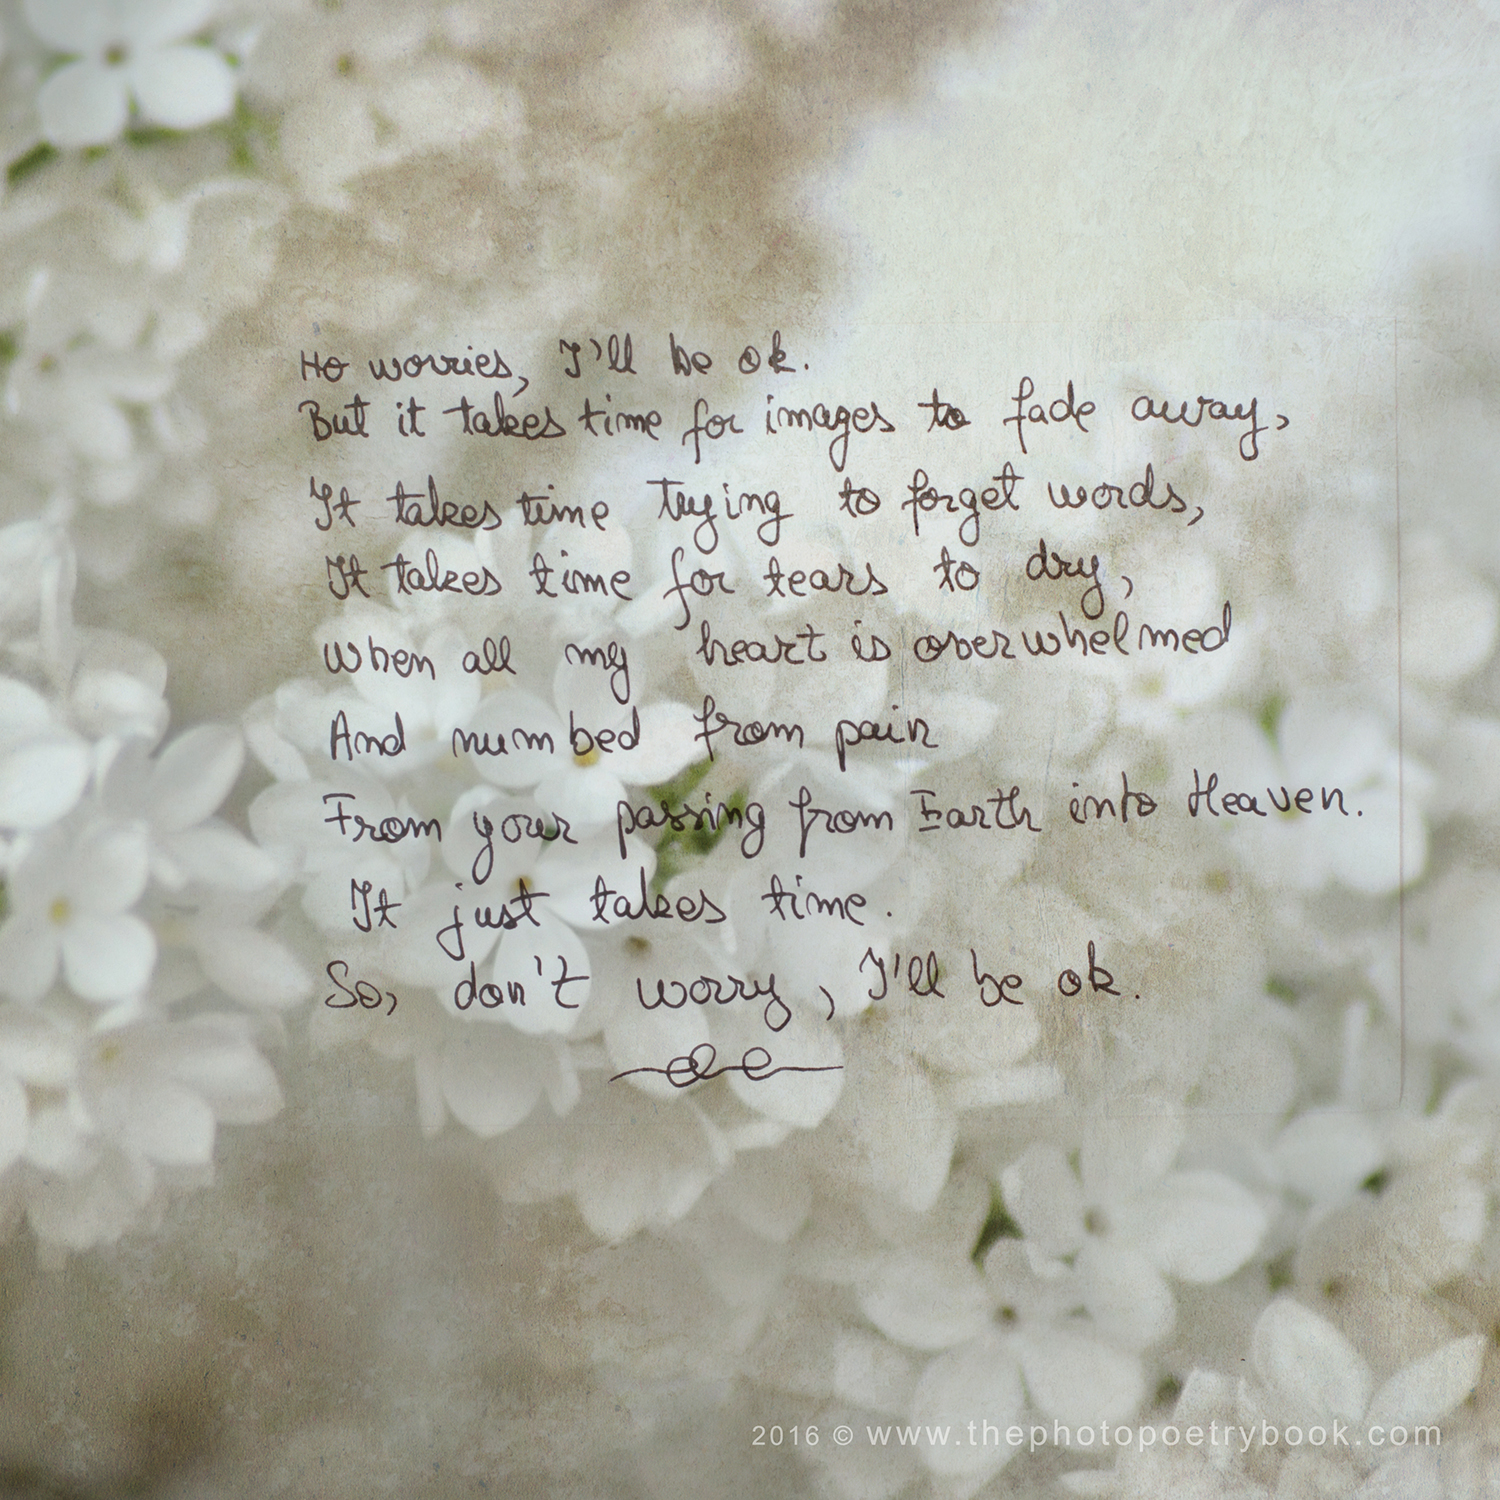 No worries, I'll be ok.
But it takes time for images to fade away,
It takes time trying to forget words,
It takes time for tears to dry,
when all my heart is overwhelmed
And numbed from pain
From your passing from Earth into Heaven.
It just takes time.
So, don't worry, I'll be ok.
2016 © www.thephotopoetrybook.com